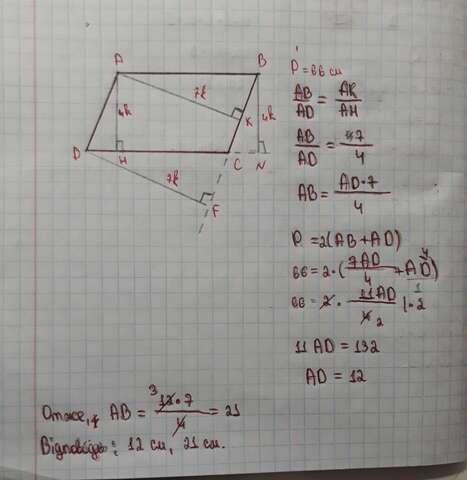 A B
4k 7k 4k
K
D H C N
7k
F
P = 66 см
AB/AD = AK/AH
AB/AD = 7/4
AB = AD·7/4
P = 2(AB + AD)
66 = 2·(7AD/4 + AD)
66 = 2· 11AD/4 |·2
11 AD = 132
AD = 12
Отже, AB = 12·7/4 = 21
Відповідь: 12 см, 21 см.